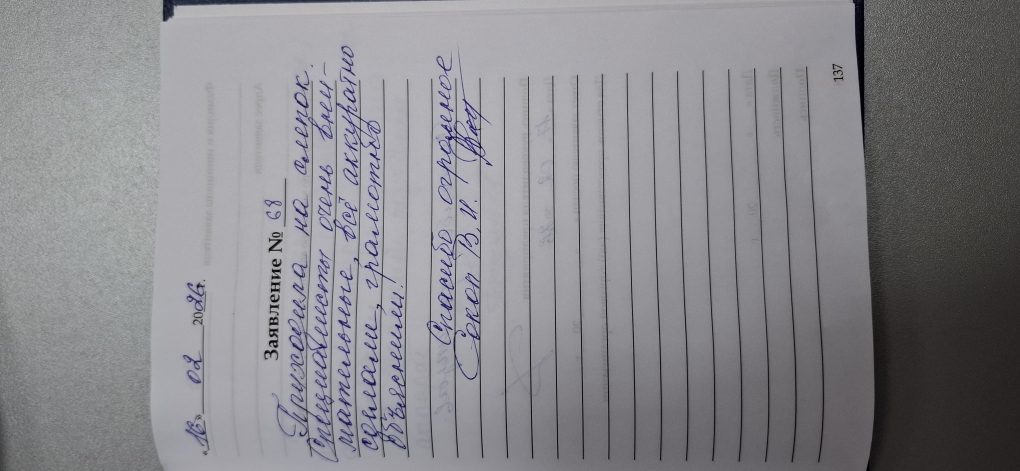 «16» 02 2026г.
Заявление № 68
Приходила на слепок.
Специалисты очень вни-
мательные, всё аккуратно
сделали, грамотно
объяснили!
Спасибо огромное
Сокол В.И.
137